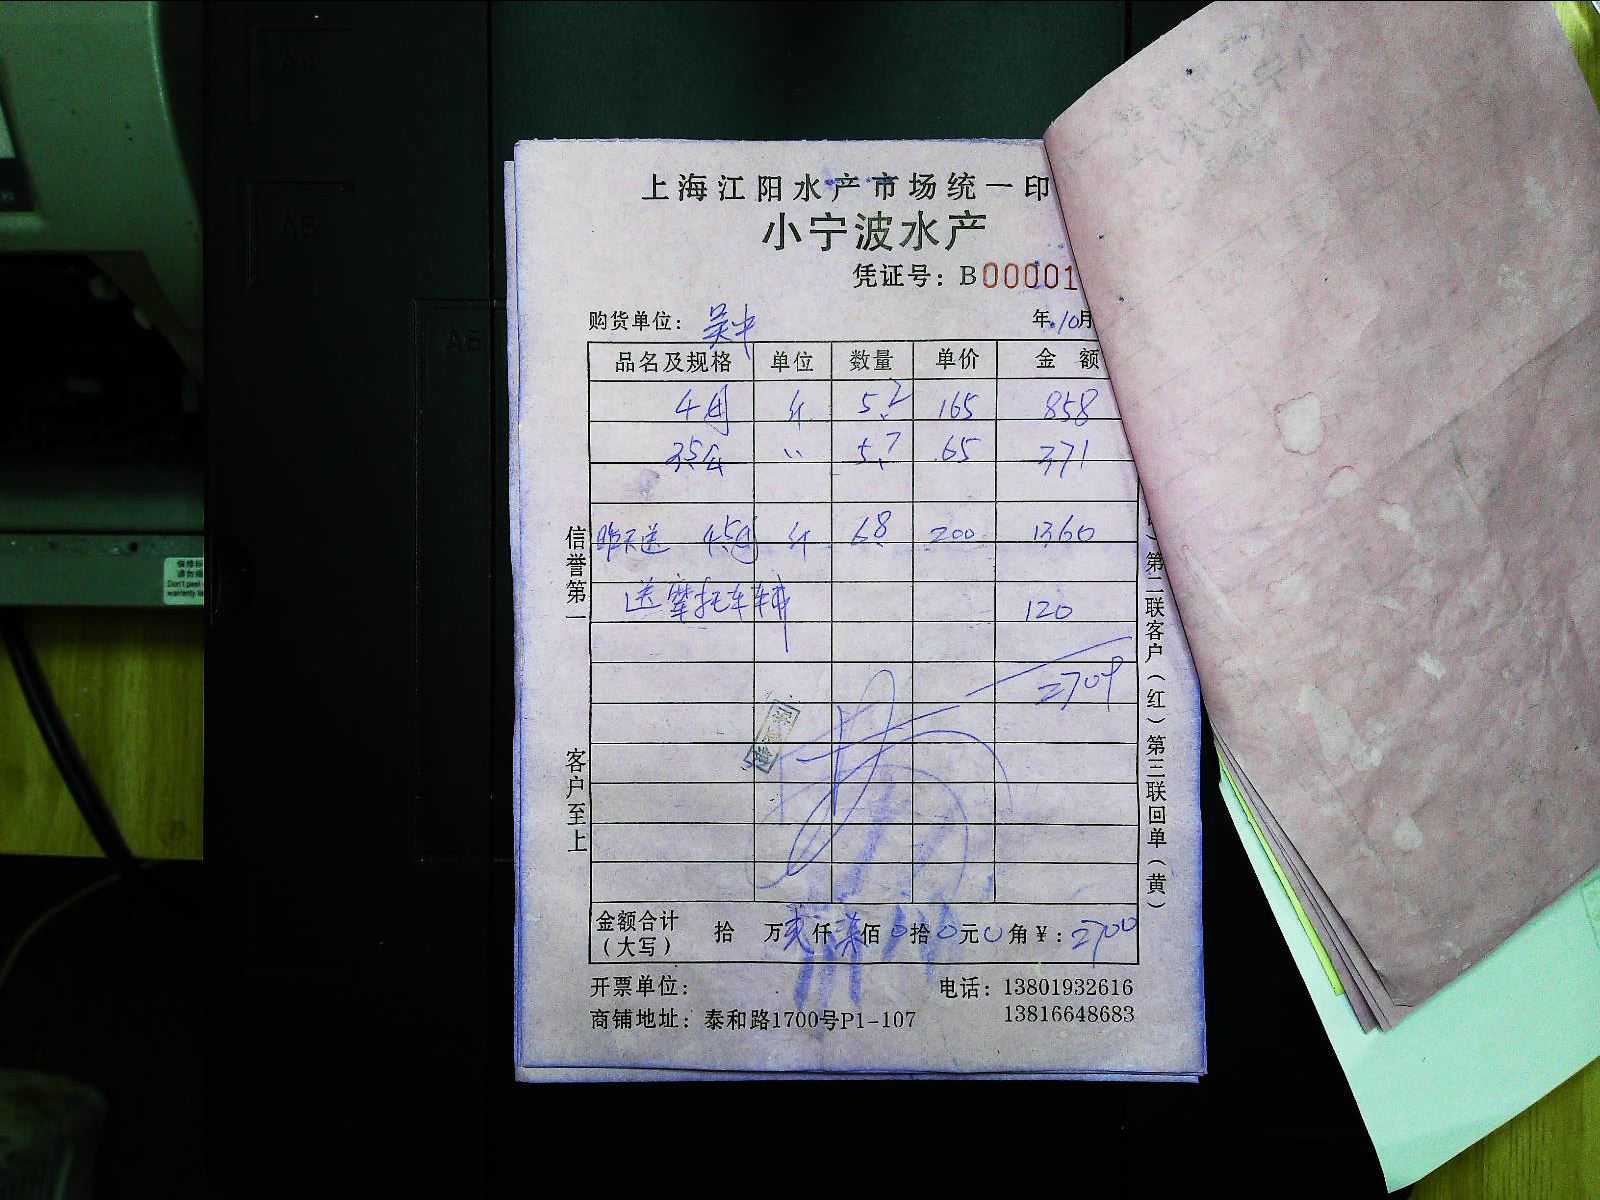 上海江阳水产市场统一印
小宁波水产
凭证号：B00001
购货单位：吴中
年10月
品名及规格 单位 数量 单价 金额
4母 斤 5.2 165 858
3.5公 〃 5.7 65 371
昨天送 4.5母 斤 6.8 200 1360
送摩托车 120
2709
信誉第一
客户至上
第二联客户（红）第三联回单（黄）
金额合计（大写） 拾 万贰仟柒佰0拾0元0角￥：2700
开票单位：
电话：13801932616
13816648683
商铺地址：泰和路1700号P1-107
A4
A5
保修标
请勿撕
Don't peel
warranty la